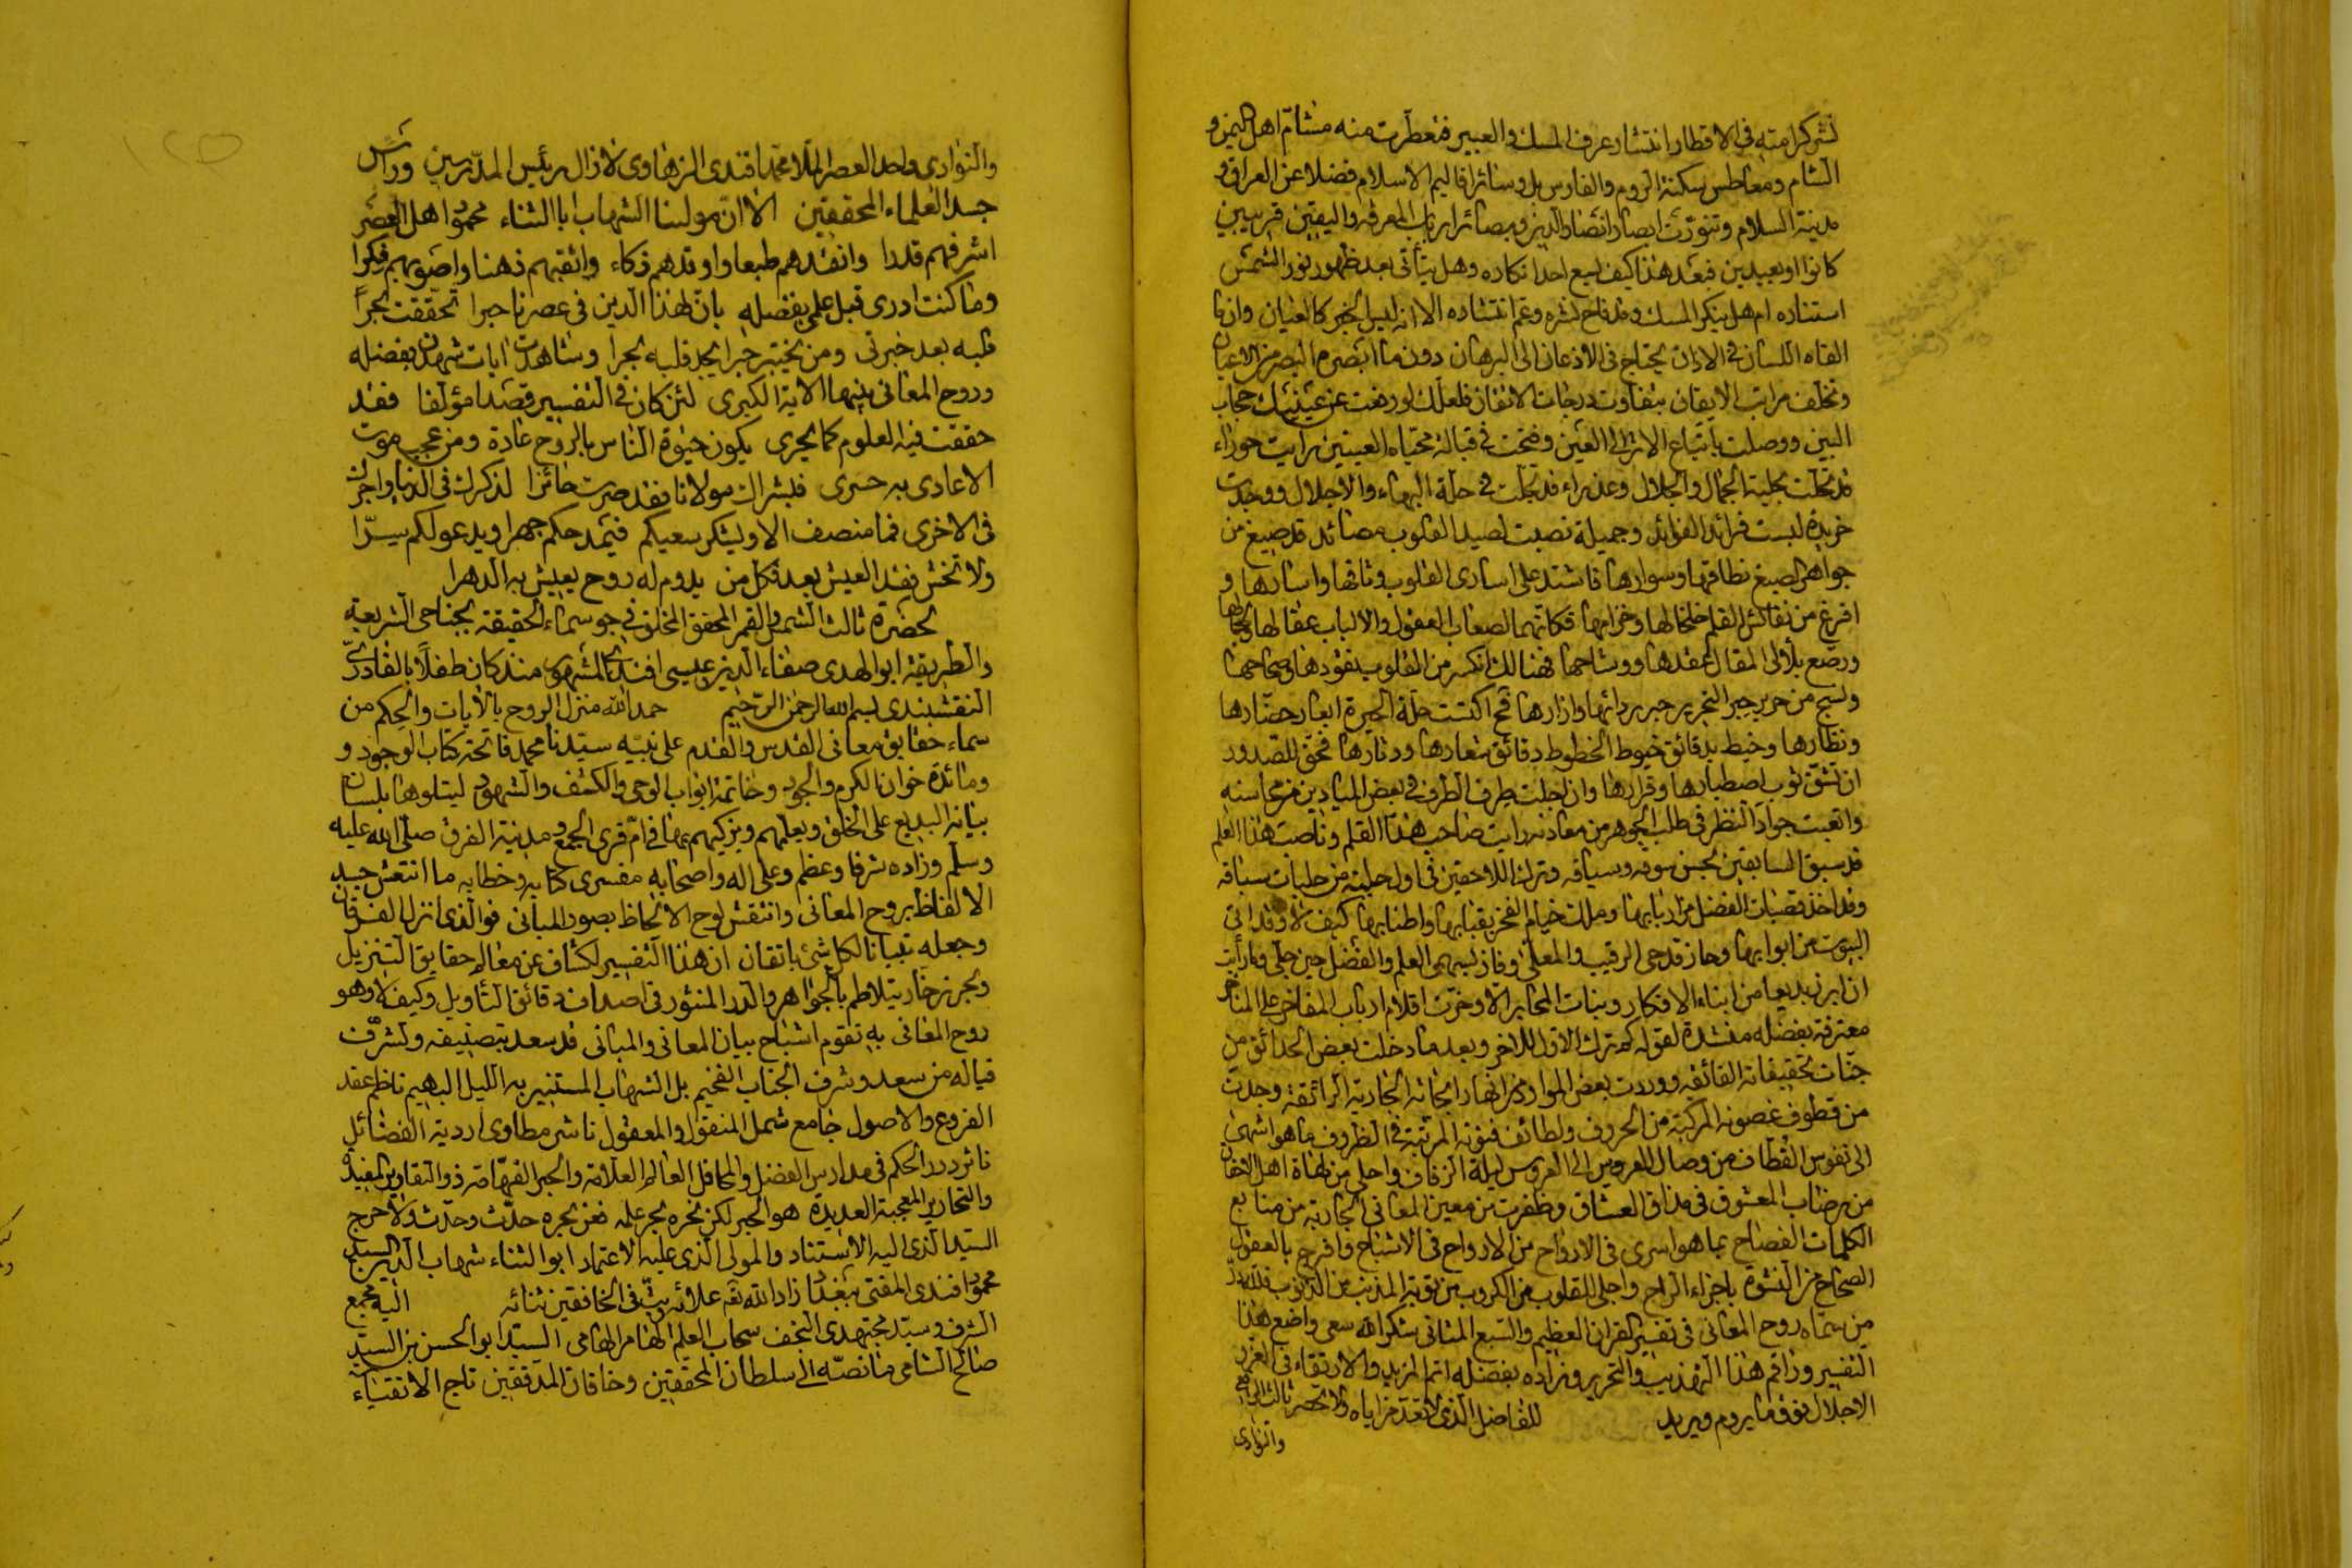 نشر كرامته في الاقطار انتشار عرف المسك والعبير فتعطرت منه مشام اهل اليمن و
الشام ومعاطس سكنة الروم والفارس بل وسائر اقاليم الاسلام فضلا عن العراق و
مدينة السلام وتنورت ابصار انصار الدين وبصائر ارباب المعرفة واليقين قريبين
كانوا او بعيدين فبعد هذا كيف يسع احدا نكاره وهل يتأتى بعد ظهور نور الشمس
استتاره ام هل ينكر المسك وقد فاح نشره وعم انتشاره الا انه ليس الخبر كالعيان وان ما
القاه اللسان في الاذان يحتاج في الاذعان الى البرهان دون ما ابصره البصر من الاعيان
وتخلف مراتب الايقان بتفاوت درجات الاتقان فلعلك لو رفعت عن عينيك حجاب
البين ووصلت باتباع الاثر الى العين وفتحت في قبالة محياه العينين رايت حوراء
قد تحلت بحلية الجمال والجلال وعذراء قد تجلت في حلة البهاء والاجلال ووجدت
خريدة لبست فرائد الفوائد وجميلة نصبت لصيد القلوب مصائد قد صيغ من
جواهر الصيغ نطاقها وسوارها فاشتد على اسارى القلوب وثاقها واسارها و
افرغ من نفائس القلم خلخالها وخزامها فكانهما لصعاب العقول والالباب عقالها ولجامها
ورصع بلآلى المقال عقدها ووشاحها فهنالك انكسر من القلوب نقودها وصحاحها
ونسج من حرير حبر التحرير حبر ردائها وازارها فح اكتست حلة الحيرة ابصار حضارها
ونظارها وخيط بدقائق خيوط الخطوط دقائق شعارها ودثارها فحق للصدور
ان تشق ثوب اصطبارها وقرارها وان اجلت طرف الطرف في بعض الميادين من محاسنه
واتعبت جواد النظر في طلب الجوهر من معادنه رايت صاحب هذا القلم وناصب هذا العلم
قد سبق السابقين بحسن سوقه وسياقه وترك اللاحقين في اول حلبة من حلبات سباقه
وقد اخذ قصبات الفضل من اربابها وملك خيام الفخر بقبابها واطنابها كيف لا وقد اتى
البيوت من ابوابها وحاز قدحى الرقيب والمعلى وفاز بسهمى العلم والفضل حين جلى وما رأيت
ان ابرز بديعا من ابناء الافكار وبنات المحابر الا وخرت اقلام ارباب المفاخر على المناخر
معترفة بفضله منشدة لقوله كم ترك الاول للآخر وبعد ما دخلت بعض الحدائق من
جنات تحقيقاته الفائقه ووردت بعض الموارد من انهار ابحاثه الجارية الرائقة وجدت
من قطوف غصونه المركبة من الحروف ولطائف فنونه المرتبة في الظروف ما هو اشهى
الى نفوس القطاف من وصال العروس الى العروس ليلة الزفاف واحلى من لهاة اهل الاتفاق
من رضاب المعشوق في مذاق العشاق وظفرت من معين المعاني الجارية من منابع
الكلمات الفصاح بما هو اسرى في الارواح من الارواح في الاشباح وافرح بالعقول
الصحاح من النشوة باجزاء الراح واجلى للقلوب من الكروب من توبة المذنب من الذنوب فلله در
من سماه روح المعاني في تفسير القران العظيم والسبع المثاني شكر الله سعى واضع هذا
التفسير وراقم هذا التهذيب والتحرير وزاده بفضله اتم المزيد والارتقاء في الغرر
الاجلال فوق ما يروم ويريد للفاضل الذي لا تعد مزاياه ولا تحصر ثالث الرافعي
والنوادى
والنوادى واحد العصر الملا محمد افندى الزهاوى لا زال رئيس المدرسين وراس
جسد العلماء المحققين الا ان مولينا الشهاب ابا الثناء محمود اهل العصر
اشرفهم قدرا وانقدهم طبعا واوقدهم ذكاء واثقبهم ذهنا واصوبهم فكرا
وما كنت ادرى قبل علمي بفضله بان لهذا الدين في عصرنا حبرا تحققت بحرا
قلبه بعد خبرتي ومن يختبر حبرا يجد قلبه بحرا وشاهدت ايات شهدن بفضله
وروح المعاني بينها الاية الكبرى لئن كان في التفسير قصدا مؤلفا فقد
حققت فيه العلوم كما يجرى يكون حيوة الناس بالروح عادة ومن عجب موت
الاعادى به حسرى فبشراك مولانا فقد صرت حائزا لذكرك في الدنيا واجرك
في الاخرى فما منصف الا وليشكر سعيكم فيمدحكم جهرا ويدعو لكم سرا
ولا تخش فقد العيش بعد فكل من يدوم له روح يعيش به الدهرا
لحضرة ثالث الشمس والقمر المحقق المحلق في جو سماء الحقيقة بجناحى الشريعة
والطريقة ابو الهدى صفاء الدين عيسى افندى المشهور منذ كان طفلا بالقادرى
النقشبندى بسم الله الرحمن الرحيم حمدا لله منزل الروح بالايات والحكم من
سماء حقايق معاني القدس والقدم على نبيه سيدنا محمد فاتحة كتاب الوجود و
ومائدة خوان الكرم والجود وخاتمة ابواب الوحى والكشف والشهود ليتلوها بلسان
بيانه البديع على الخلق ويعلمهم ويزكيهم بها في ام قرى الجمع ومدينة الفرق صلى الله عليه
وسلم وزاده شرفا وعظم وعلى اله واصحابه مفسرى كتابه وخطابه ما انتعش جسد
الالفاظ بروح المعاني وانتقش لوح الالحاظ بصور المباني فوالذى انزل الفرقان
وجعله تبيانا لكل شئ باتقان ان هذا التفسير لكشاف عن معالم حقايق التنزيل
وبحر زخار يتلاطم بالجواهر والدر المنثور في اصداف دقائق التأويل وكيف لا وهو
روح المعاني به تقوم اشباح بيان المعاني والمباني قد سعد بتصنيفه وتشرف
فياله من سعد وشرف الجناب الفخيم بل الشهاب المستنير به الليل البهيم ناظم عقد
الفروع والاصول جامع شمل المنقول والمعقول ناشر مطاوى اردية الفضائل
ناثر درر الحكم في مدارس الفضل والمحافل العالم العلامة والحبر الفهامة ذو التقارير المفيدة
والتحارير المعجبة العديدة هو الحبر لكن بحره بحر علمه فعن بحره حدث وحدث ولا حرج
السيد الذى اليه الاستناد والمولى الذى عليه الاعتماد ابو الثناء شهاب الدين السيد
محمود افندى المفتى ببغداد زاد الله تعه علائه وبث في الخافقين ثنائه اليه مجمع
الشرف وسيد مجتهدى النجف سحاب العلم الهامر الهامى السيد ابو الحسن بن السيد
صالح الشامى ما نصه الى سلطان المحققين وخاقان المدققين تاج الاتقياء